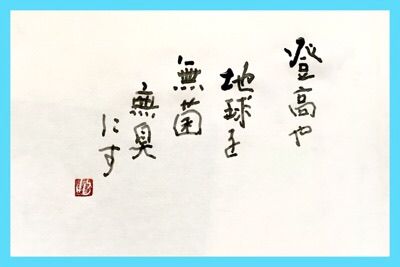 登高や
地球を
無菌
無臭
にす